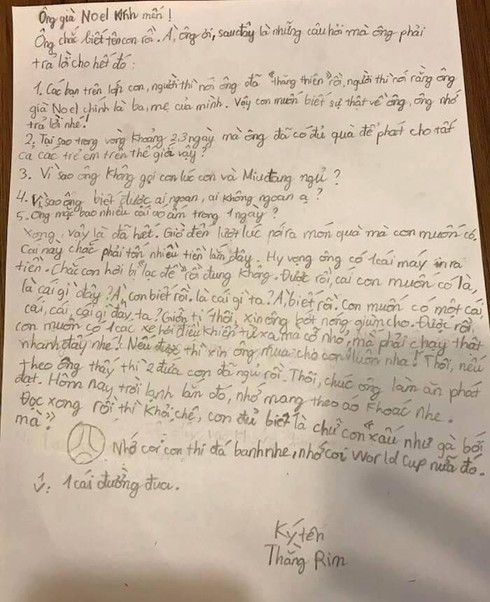 Ông già Noel kính mến!
Ông chắc biết tên con rồi. À, ông ơi, sau đây là những câu hỏi mà ông phải
trả lời cho hết đó:
1. Các bạn trên lớp con, người thì nói ông đã "thăng thiên" rồi, người thì nói rằng ông
già Noel chính là ba, mẹ của mình. Vậy con muốn biết sự thật về ông, ông nhớ
trả lời nhé!
2. Tại sao trong vòng khoảng 2,3 ngày mà ông đã có đủ quà để phát cho tất
cả các trẻ em trên thế giới vậy?
3. Vì sao ông không gọi con lúc con và Miu đang ngủ?
4. Vì sao ông biết được ai ngoan, ai không ngoan ạ?
5. Ông mặc bao nhiêu cái áo ấm trong 1 ngày?
Xong, vậy là đã hết. Giờ đến lượt lúc nói ra món quà mà con muốn có,
Cái này chắc phải tốn nhiều tiền lắm đây. Hy vọng ông có 1 cái máy in ra
tiền. Chắc con hơi bị "lạc đề" rồi đúng không. Được rồi, cái con muốn có là,
là cái gì đây? À, con biết rồi. là cái gì ta? À, biết rồi. Con muốn có một cái,
cái, cái, cái gì đây ta? Giỡn tí thôi, xin ông bớt nóng giùm cho. Được rồi,
con muốn có 1 các xe hơi điều khiển từ xa, mà cỡ nhỏ, mà phải chạy thật
nhanh đấy nhé! Nếu được thì xin ông mua cho con luôn nha! Thôi, nếu
theo ông thấy thì 2 đứa con đã ngủ rồi. Thôi, chúc ông làm ăn phát
đạt. Hôm nay trời lạnh lắn đó, nhớ mang theo áo Khoác nhe.
Đọc xong rồi thì Khỏi chê, con đủ biết là chữ con "xấu như gà bới
mà"
Nhớ coi con thi đá banh nhe, nhớ coi World Cup nữa đó.
1 cái đường đua.
Ký tên
Thăng Rim